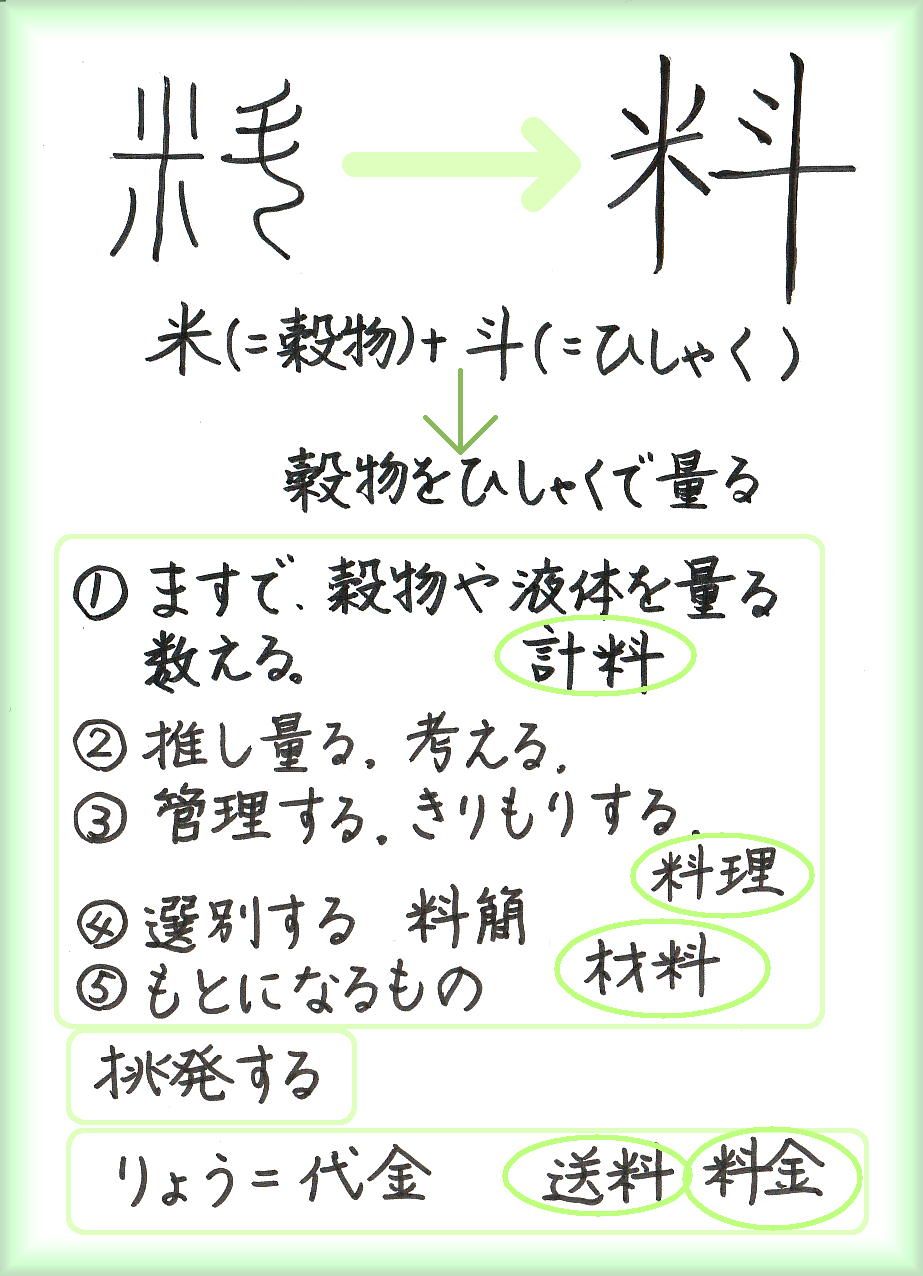 料 料
米(=穀物)+斗(=ひしゃく)
穀物をひしゃくで量る
①ますで、穀物や液体を量る
数える。 計料
②推し量る。考える。
③管理する。きりもりする。
料理
④選別する 料簡
材料
⑤もとになるもの
挑発する
りょう=代金 送料 料金